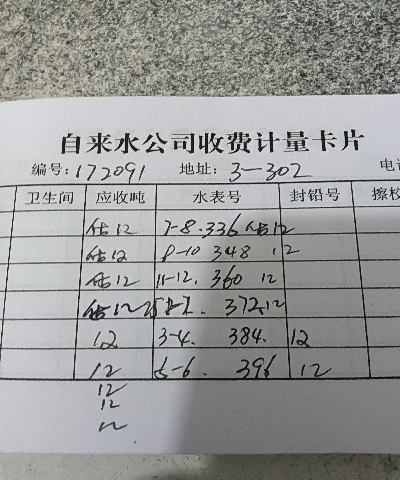 自来水公司收费计量卡片
编号:172091 地址: 3-302 电话
卫生间 应收吨 水表号 封铅号 擦校
估12 7-8.336 估12
估12 9-10 348 12
估12 11-12. 360 12
估12 372.12
12 3-4. 384. 12
12 5-6. 396 12
12
12
12